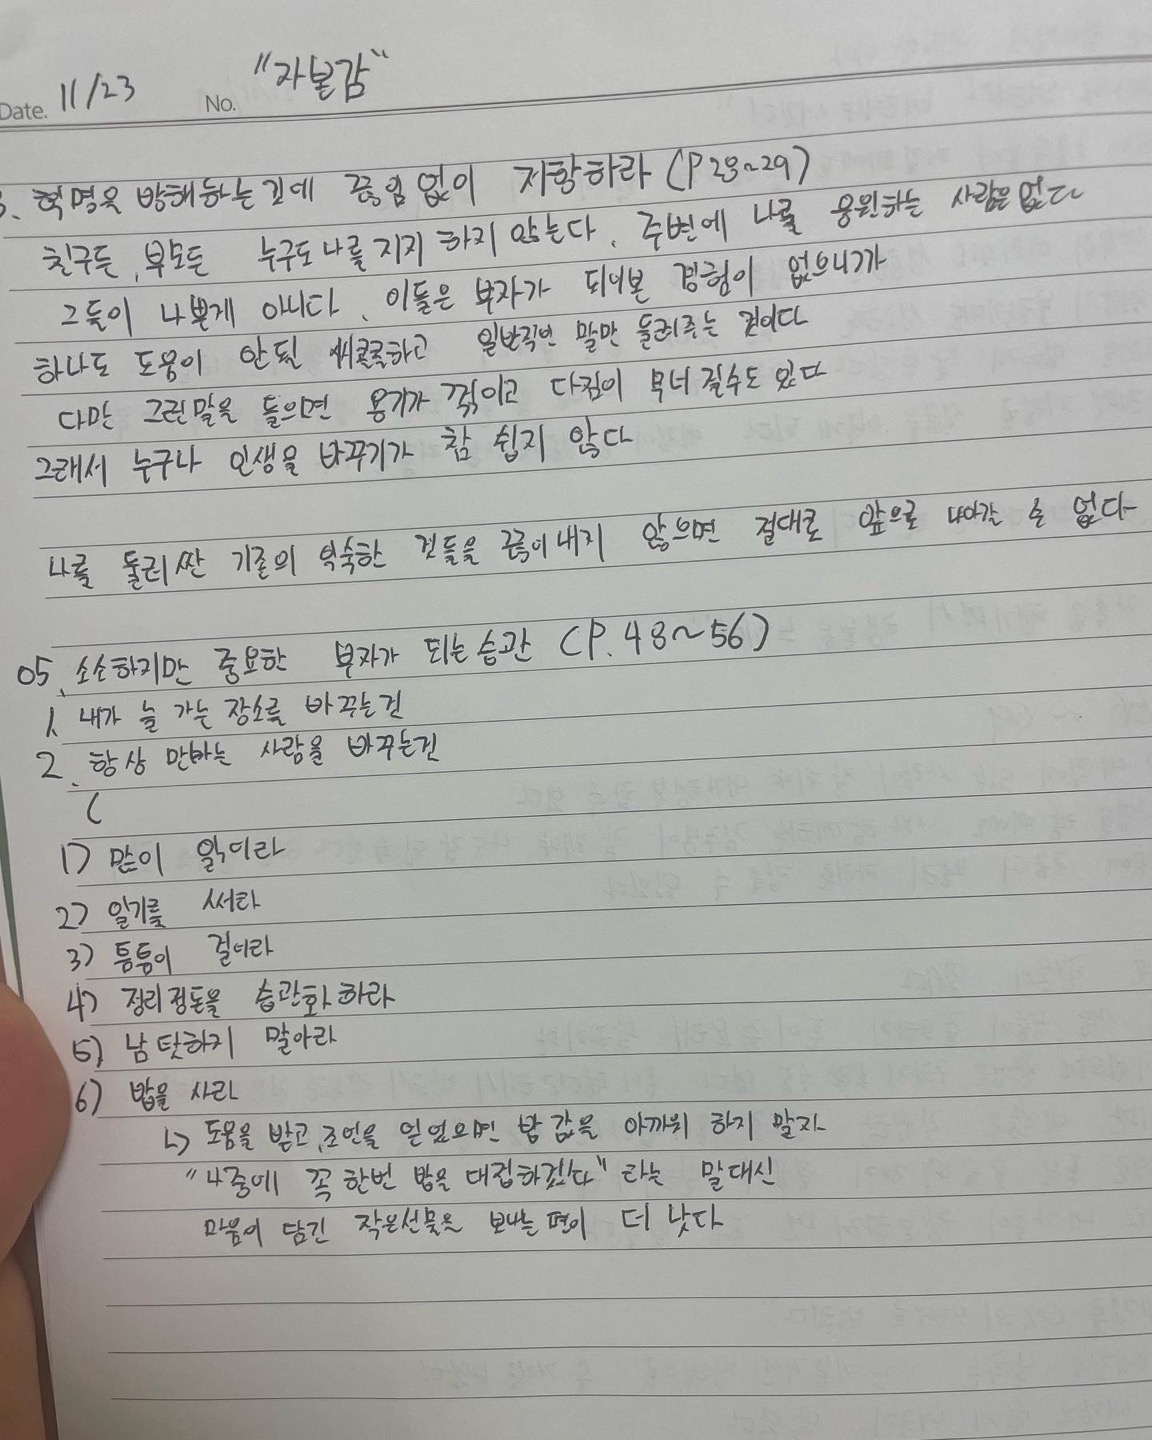 Date. 11/23 No. "자본감"
3. 혁명을 방해하는 것에 끊임없이 저항하라 (P 28~29)
친구든, 부모든 누구도 나를 지지 하지 않는다. 주변에 나를 응원하는 사람은 없다
그들이 나쁜게 아니다. 이들은 부자가 되어본 경험이 없으니까
하나도 도움이 안될 일반적인 말만 들려주는 것이다
다만 그런말을 들으면 용기가 꺾이고 다짐이 무너질수도 있다
그래서 누구나 인생을 바꾸기가 참 쉽지 않다
나를 둘러싼 기존의 익숙한 것들을 끊어내지 않으면 절대로 앞으로 나아갈 수 없다
05. 소소하지만 중요한 부자가 되는 습관 (P. 48~56)
1. 내가 늘 가는 장소를 바꾸는건
2. 항상 만나는 사람을 바꾸는건
(
1) 많이 읽어라
2) 일기를 써라
3) 틈틈이 걸어라
4) 정리정돈을 습관화하라
5) 남탓하지 말아라
6) 밥을 사라
↳ 도움을 받고, 조언을 얻었으면 밥 값을 아까워 하지 말자
"나중에 꼭 한번 밥을 대접하겠다" 라는 말대신
마음이 담긴 작은선물을 보내는 편이 더 낫다